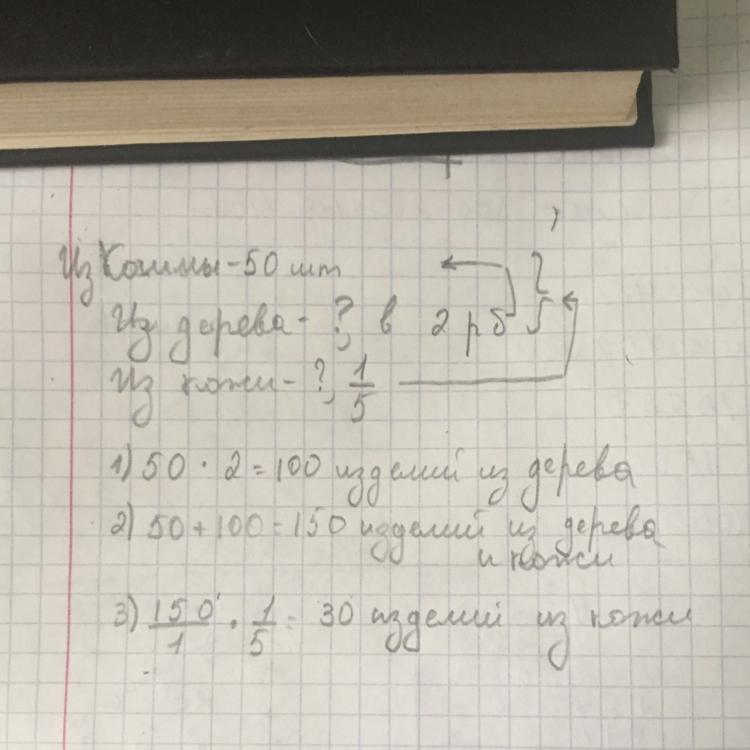 Из Соломы - 50 шт
Из дерева - ?, в 2 р б
Из кожи - ?, 1/5
1) 50 · 2 = 100 изделий из дерева
2) 50 + 100 = 150 изделий из дерева
и кожи
3) 150/1 · 1/5 = 30 изделий из кожи